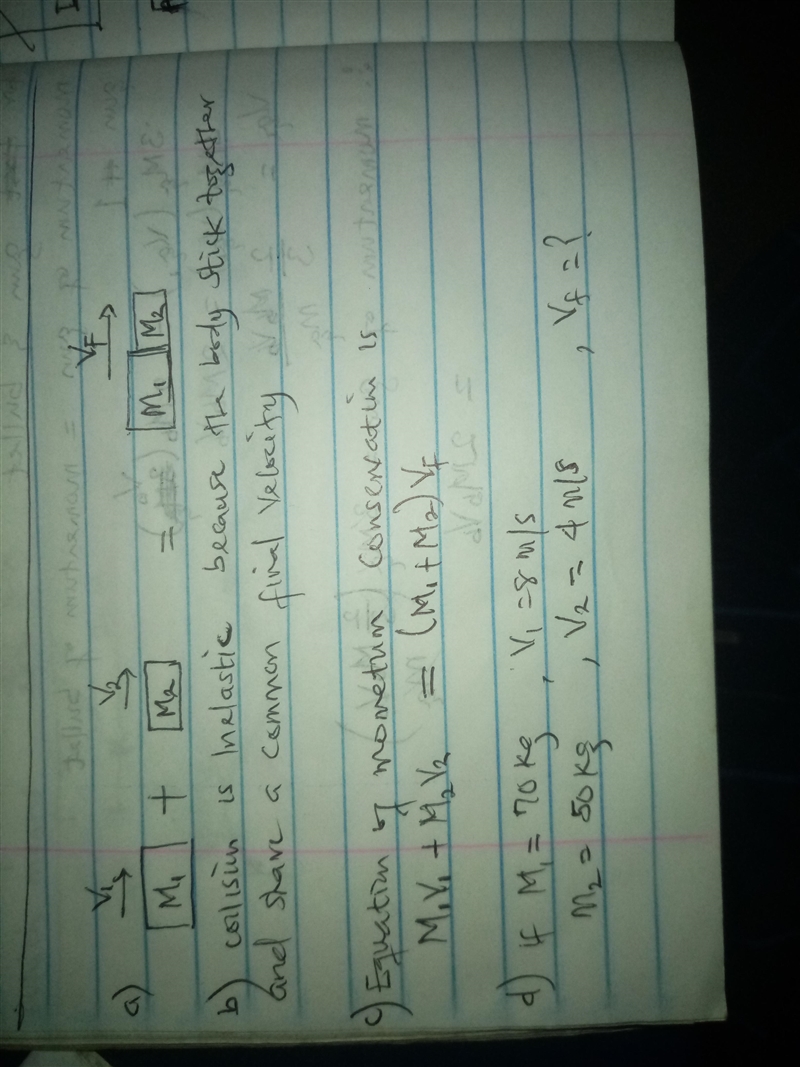 V1 V2 VF
a) M1 + M2 = M1 M2
b) collision is Inelastic because the body stick together
and share a common final velocity
c) Equation of mometum Conservation is
M1V1 + M2V2 = (M1 + M2) VF
d) if M1 = 70kg , V1 = 8 m/s
m2 = 50kg , V2 = 4 m/s , Vf = ?